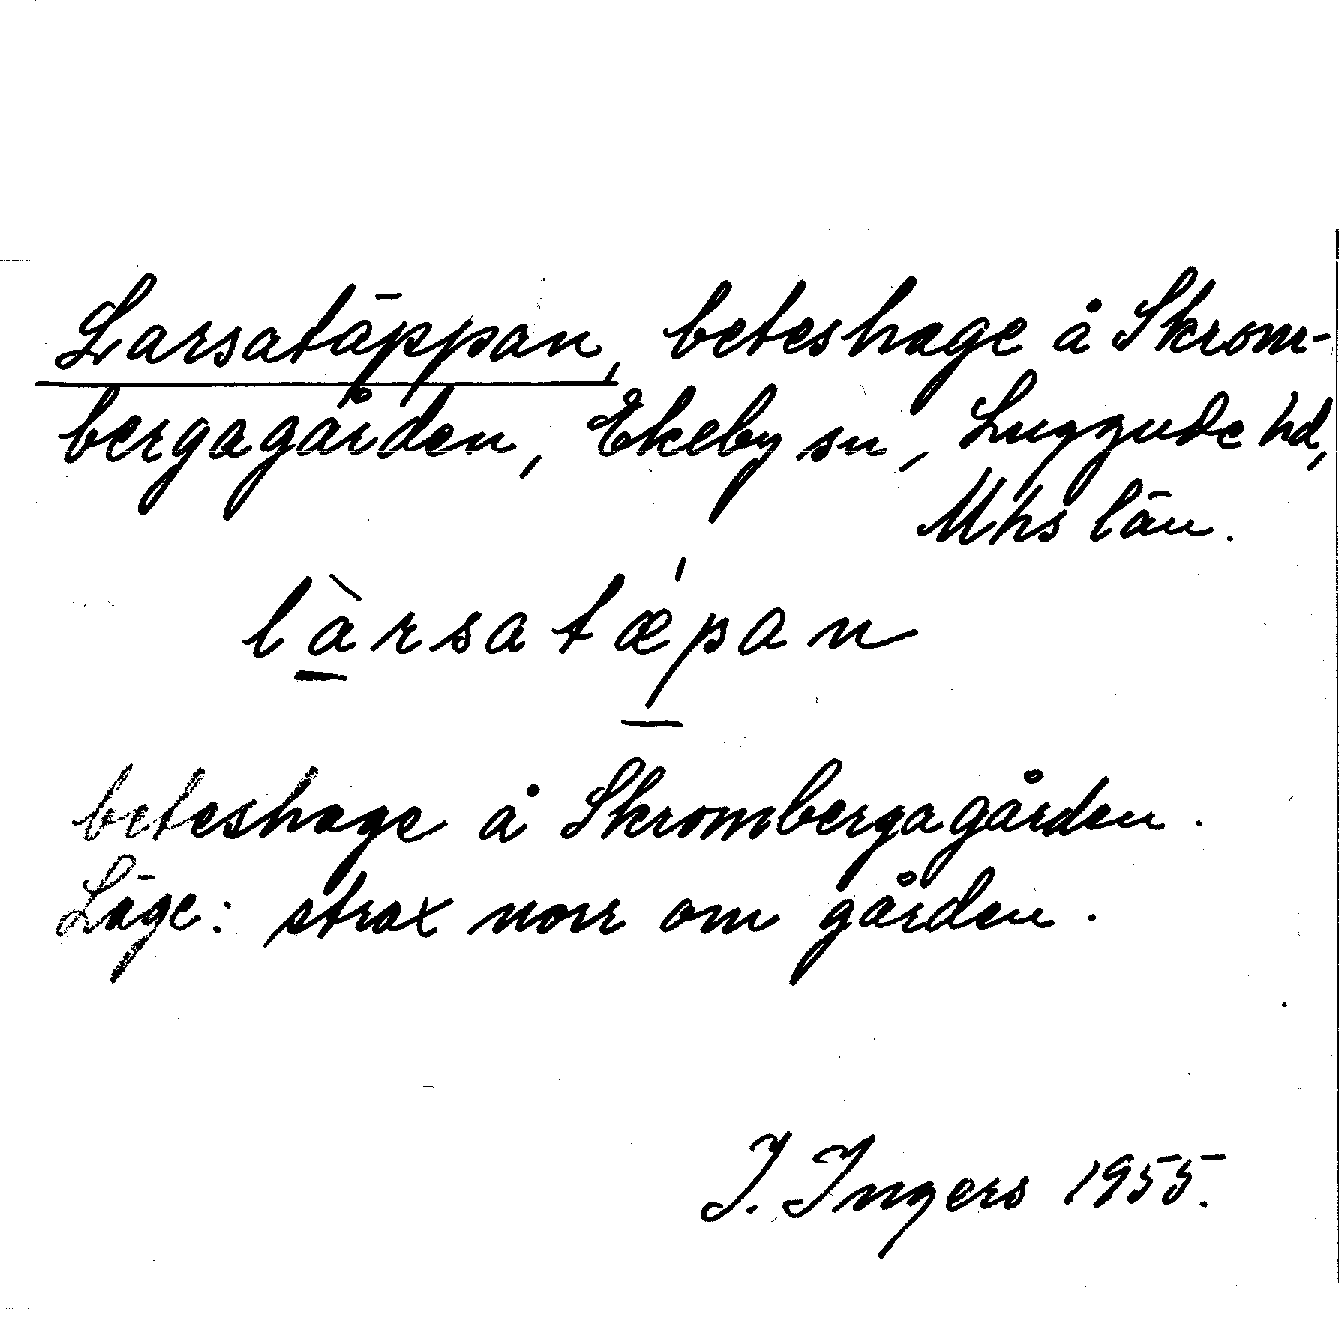 Larsatäppan, beteshage å Skrom-
bergagården, Ekeby sn, Luggude hd,
Mhs län.
làrsatǽpan
beteshage å Skrombergagården.
Läge: strax norr om gården.
I. Ingers 1955.